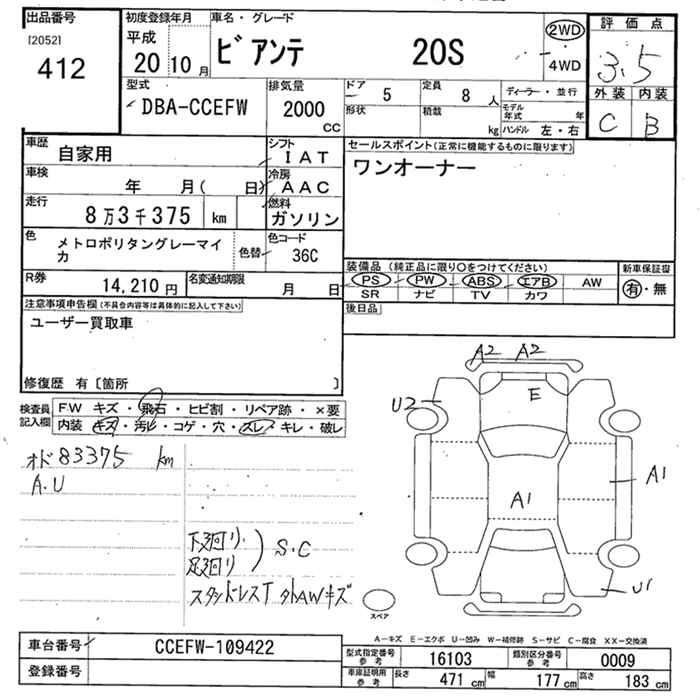 出品番号
[2052]
412
初度登録年月
平成
20 10 月
車名・グレード
ビアンテ 20S
2WD
4WD
評価点
3.5
外装 内装
C B
型式
DBA-CCEFW
排気量
2000
CC
ドア
5
定員
8 人
形状
積載
kg
ディーラー・並行
モデル年式 年
ハンドル 左・右
車歴
自家用
シフト
IAT
車検
年 月( 日)
冷房
AAC
走行
8万3千375 km
燃料
ガソリン
色
メトロポリタングレーマイカ
色替
色コード
36C
R券
14,210 円
名変通知期限
月 日
セールスポイント(正常に機能するものに限ります)
ワンオーナー
装備品 (純正品に限り○をつけてください)
PS PW ABS エアB AW
SR ナビ TV カワ
新車保証書
有・無
後日品
注意事項申告欄(不具合内容等は具体的に記入して下さい)
ユーザー買取車
修復歴 有〔箇所 〕
検査員記入欄
FW キズ・飛石・ヒビ割・リペア跡・×要
内装・キズ・汚レ・コゲ・穴・スレ・キレ・破レ
オド 83375 km
A.U
下廻り.
足廻り
S.C
スタッドレスT 外AWキズ
A2 A2
E
U2
A1
A1
U1
スペア
A-キズ E-エクボ U-凹み W-補修跡 S-サビ C-腐食 XX-交換済
車台番号
CCEFW-109422
登録番号
型式指定番号 参考
16103
類別区分番号 参考
0009
車庫証明用 参考
長さ 471 cm
幅 177 cm
高さ 183 cm